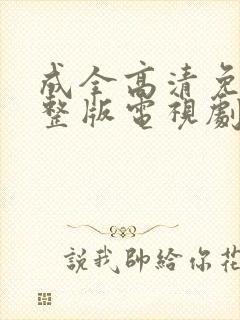 成全高清免
整版電視劇
說我帥給你花